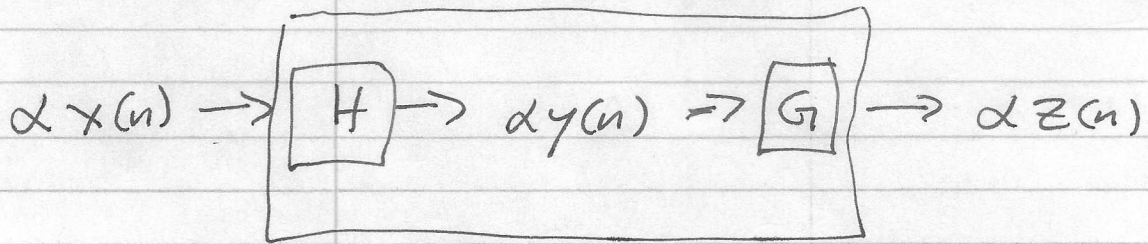 αx(n) → H → αy(n) → G → αz(n)